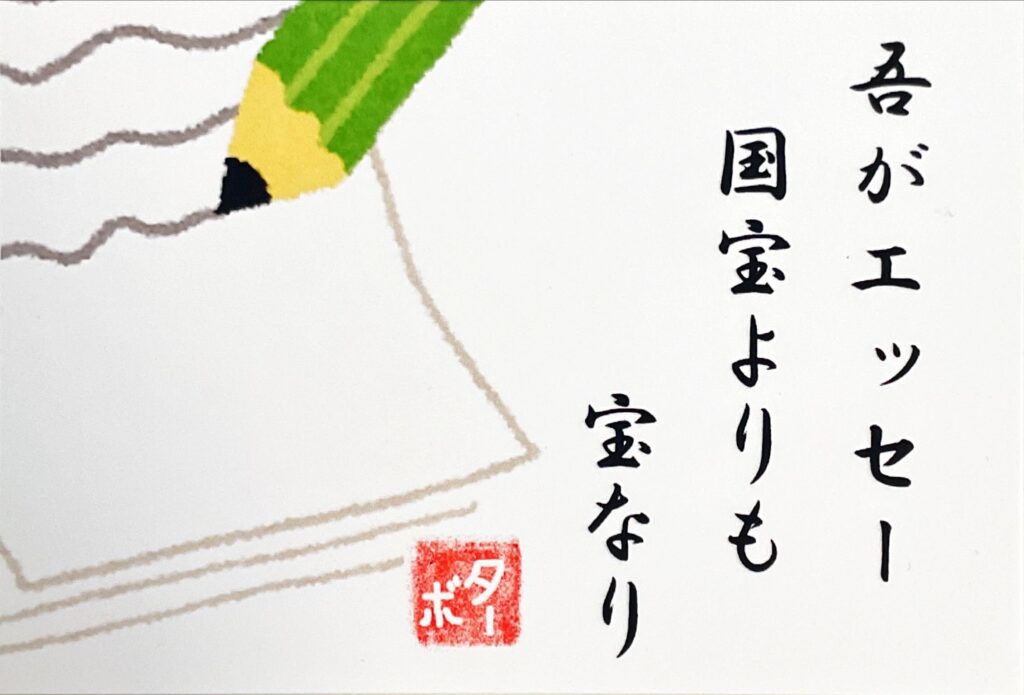 吾がエッセー
国宝よりも
宝なり
ター
ボ